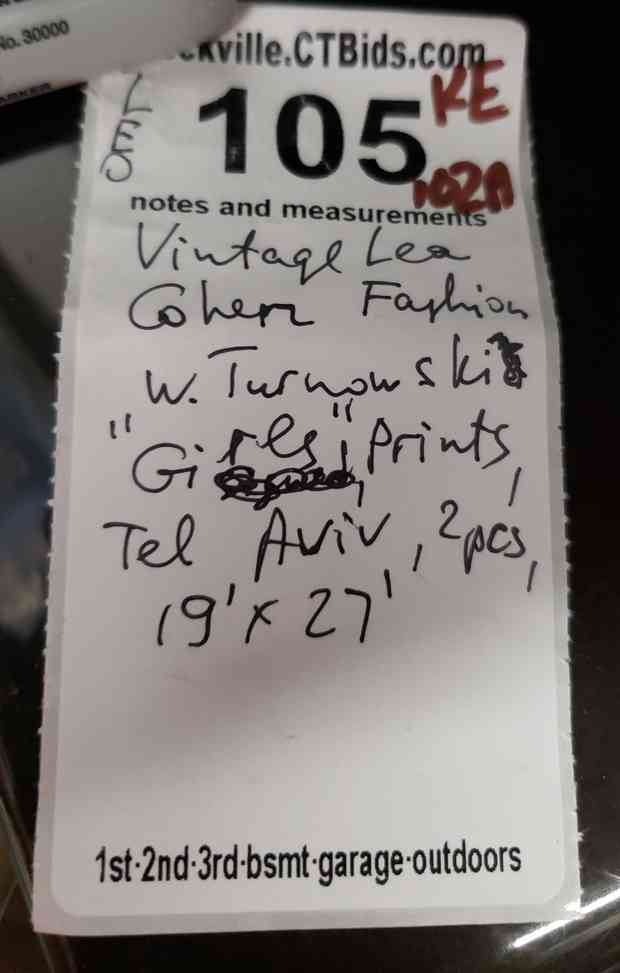 No. 30000
ckville.CTBids.com
LEO
105
KE
102A
notes and measurements
Vintage Lea
Cohen Fashion
W. Turnowski
"Girls" Prints,
Tel Aviv, 2pcs,
19' x 27'
1st·2nd·3rd·bsmt·garage·outdoors